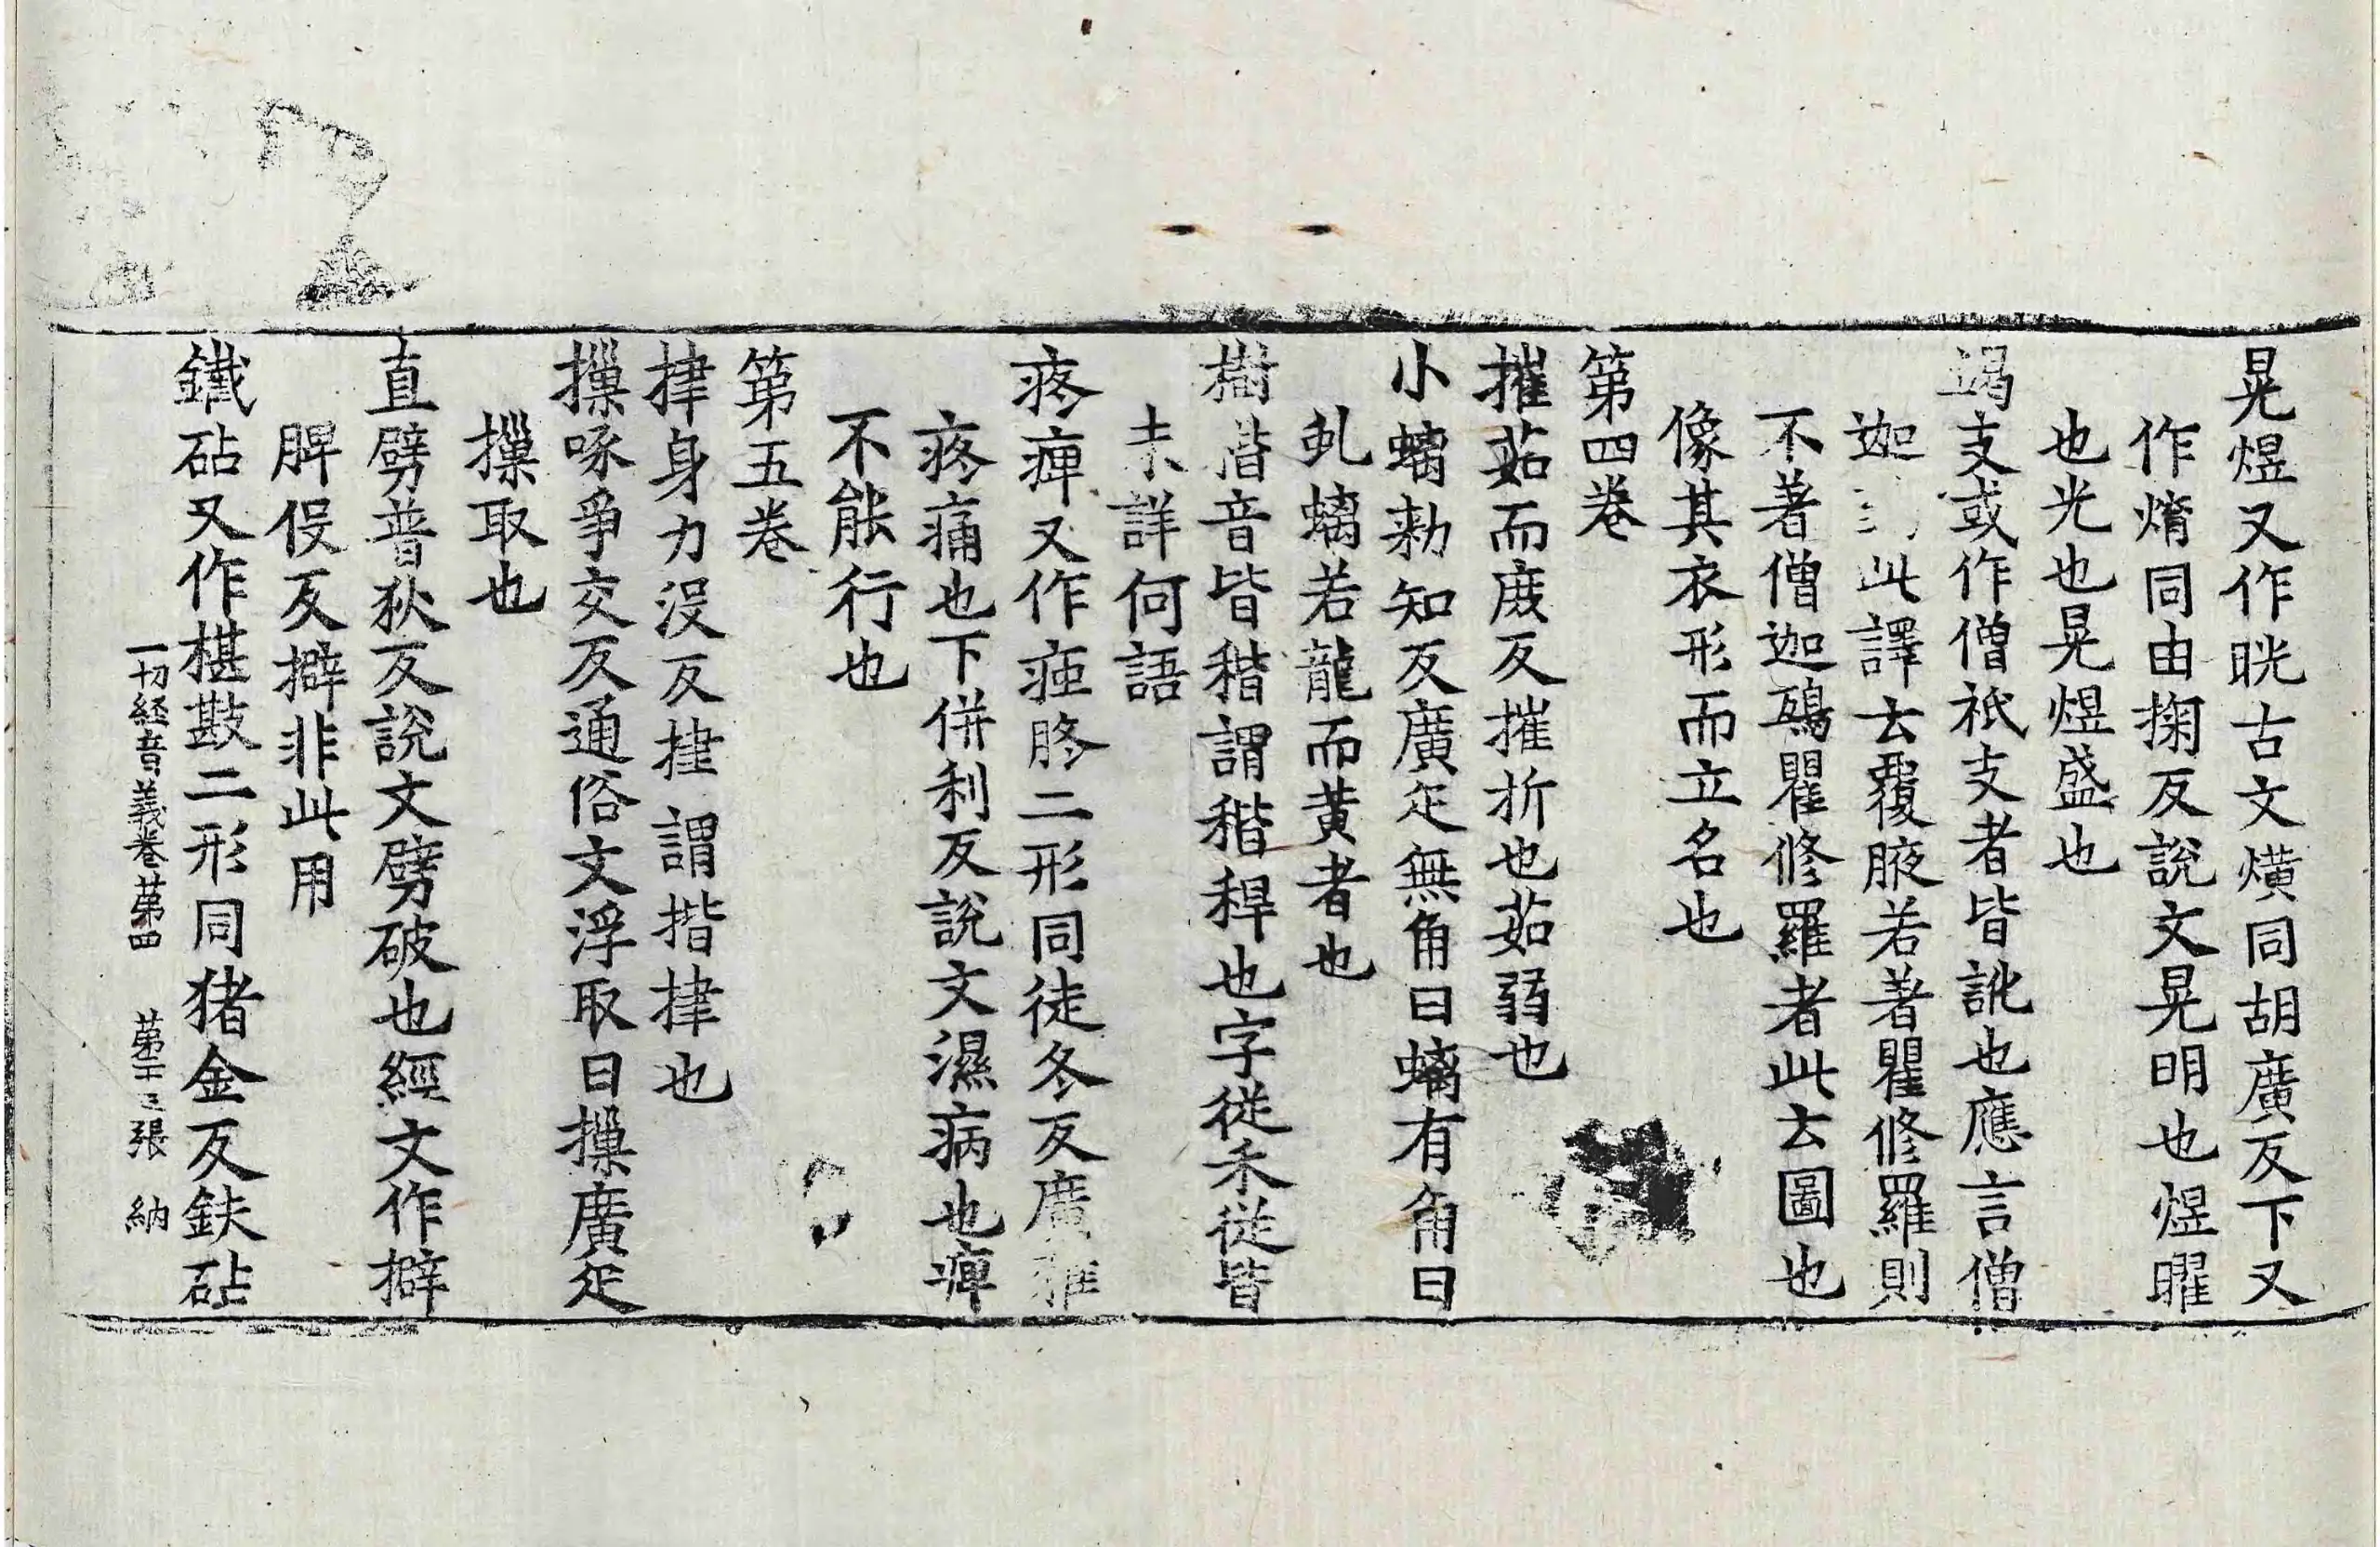 晃煜又作晄古文熿同胡廣反下又
作焴同由掬反說文晃明也煜曜
也光也晃煜盛也
竭支或作僧祇支者皆訛也應言僧
迦此譯云覆腋若著瞿修羅則
不著僧迦鵄瞿修羅者此云圖也
像其衣形而立名也
第四卷
摧茹而庶反摧折也茹弱也
小螭勑知反廣疋無角曰螭有角曰
虬螭若龍而黃者也
樹湝音皆稭謂稭稈也字從禾從皆
未詳何語
疼痺又作痋胮二形同徒冬反廣雅
疼痛也下併利反說文濕病也痺
不能行也
第五卷
㨖身力沒反㨖謂揩㨖也
摷啄爭交反通俗文浮取曰摷廣疋
摷取也
直劈普狄反說文劈破也經文作擗
脾役反擗非此用
鐵砧又作椹㪛二形同猪金反鈇砧
一切經音義卷第四 第二十三張 納